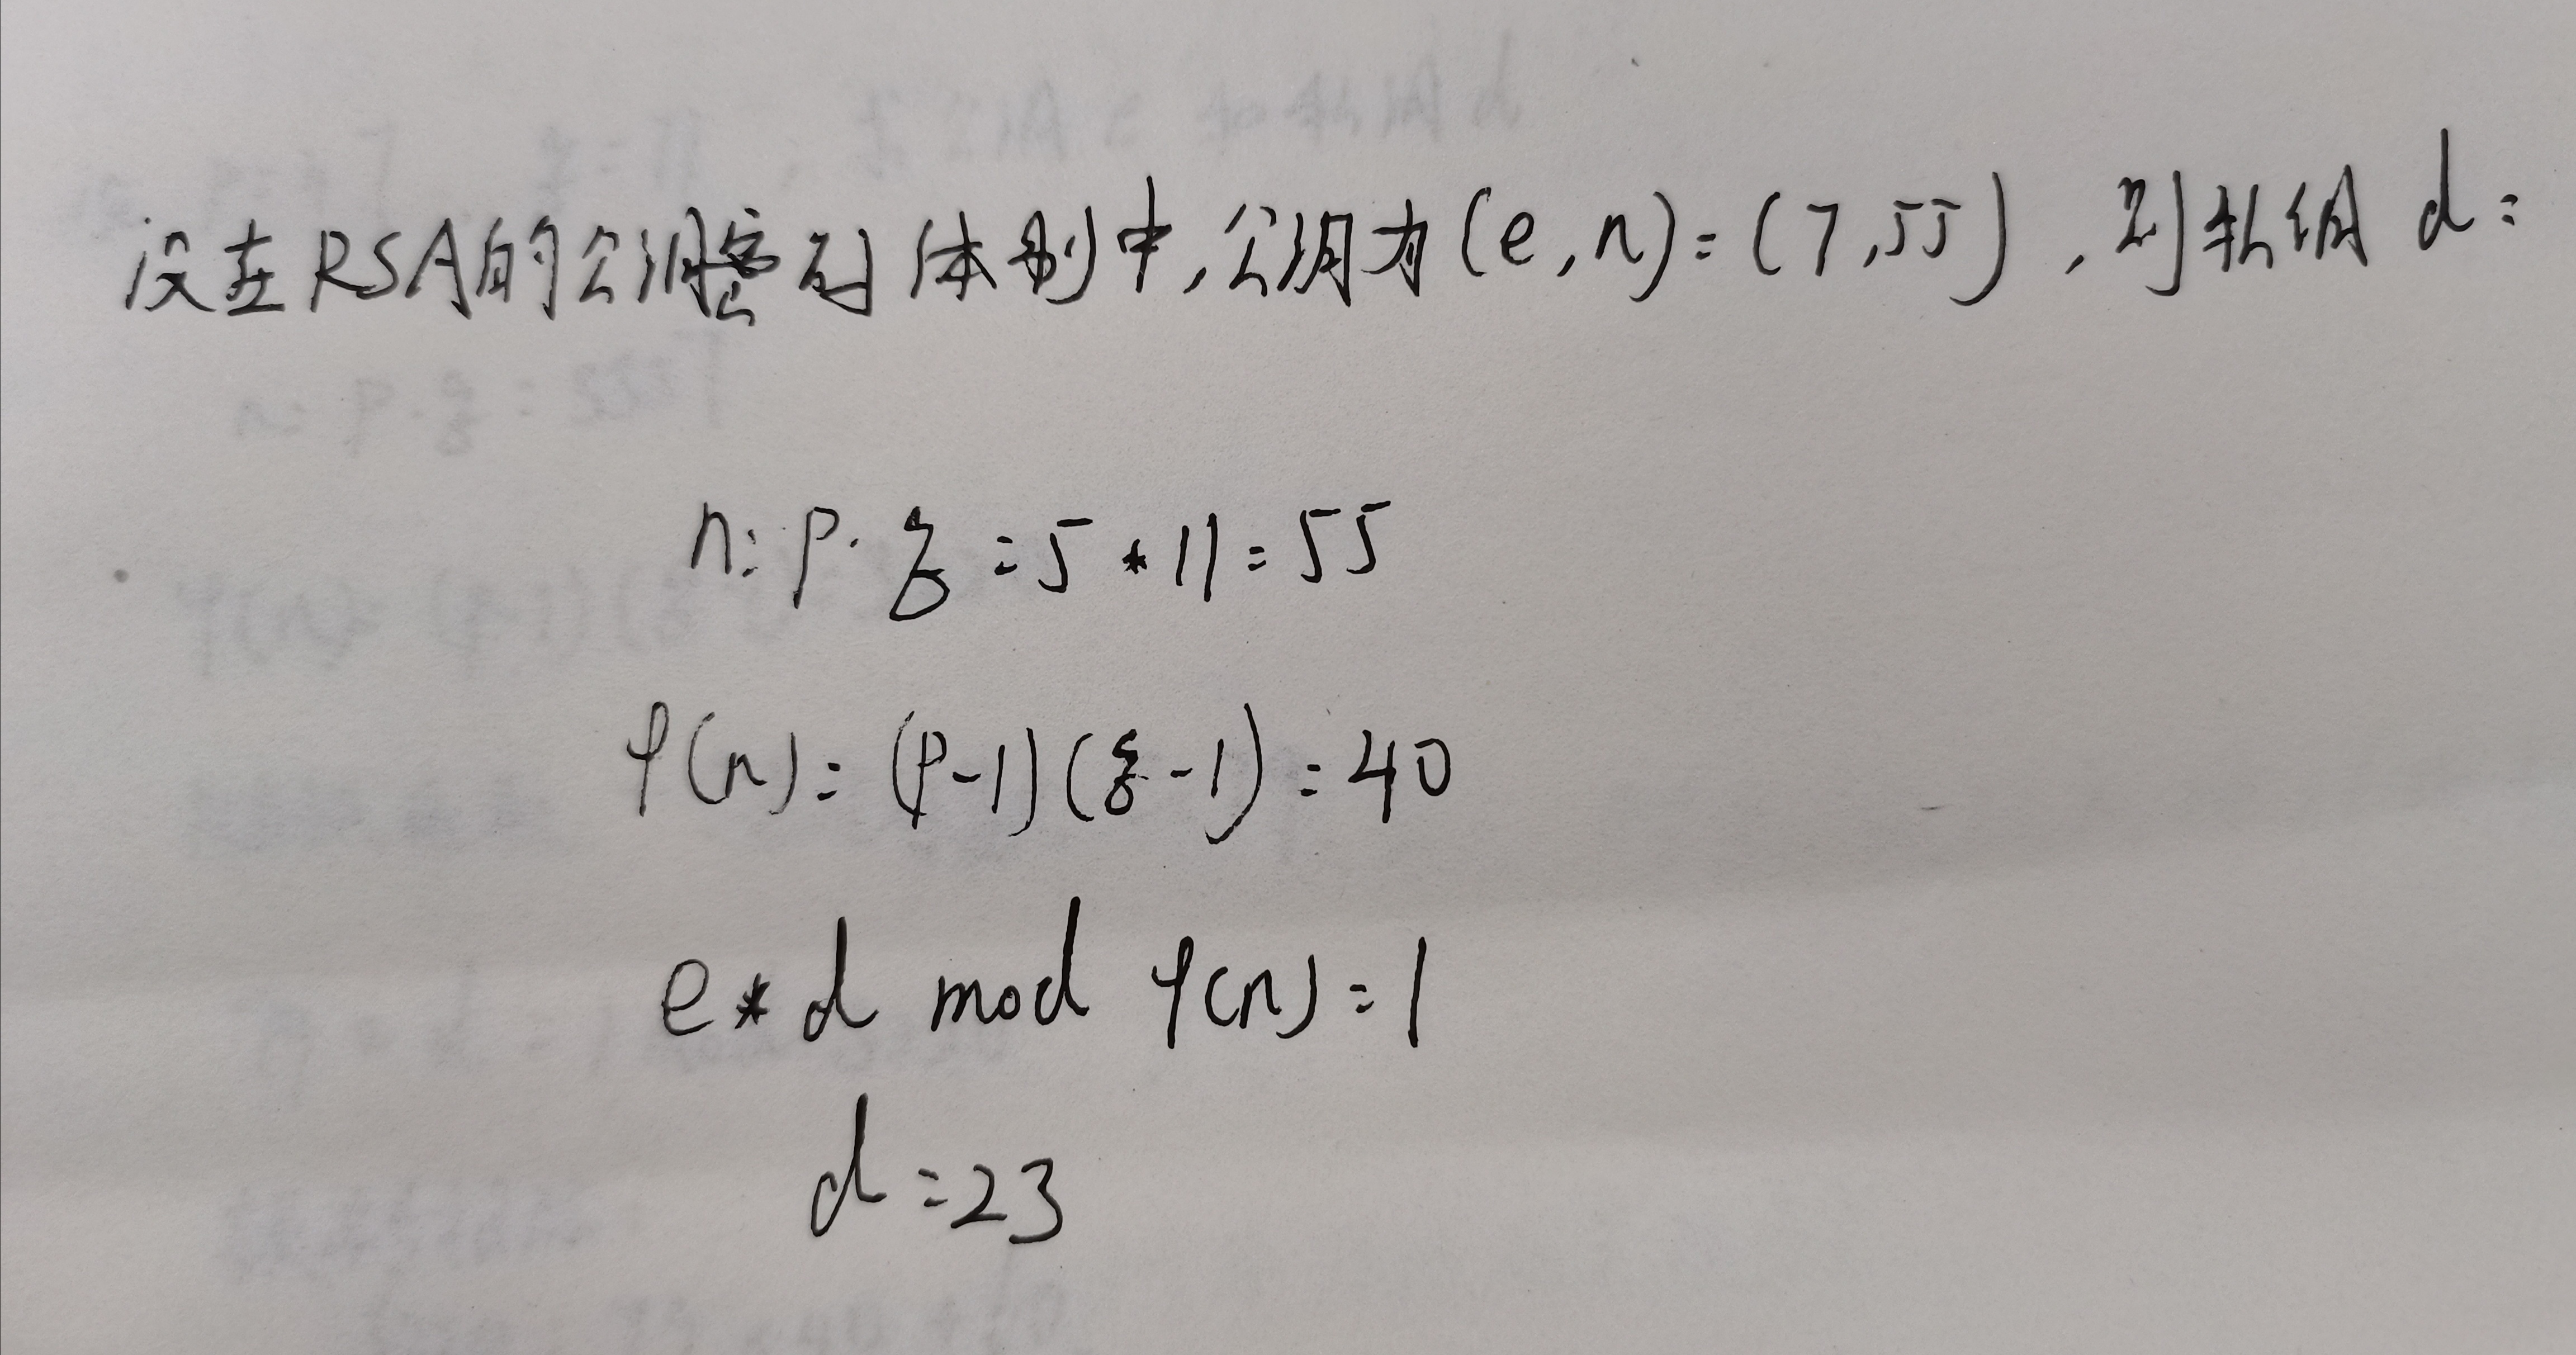 设在RSA的公钥密码体制中,公钥为(e,n)=(7,55),则私钥d=
n=p·q=5*11=55
φ(n)=(p-1)(q-1)=40
e*d mod φ(n)=1
d=23